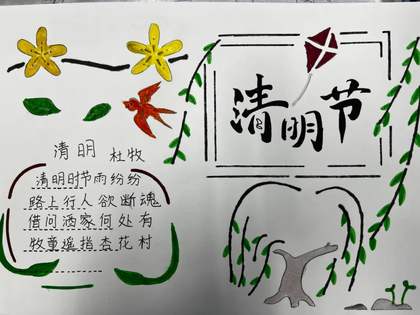 清明节
清明 杜牧
清明时节雨纷纷
路上行人欲断魂
借问酒家何处有
牧童遥指杏花村